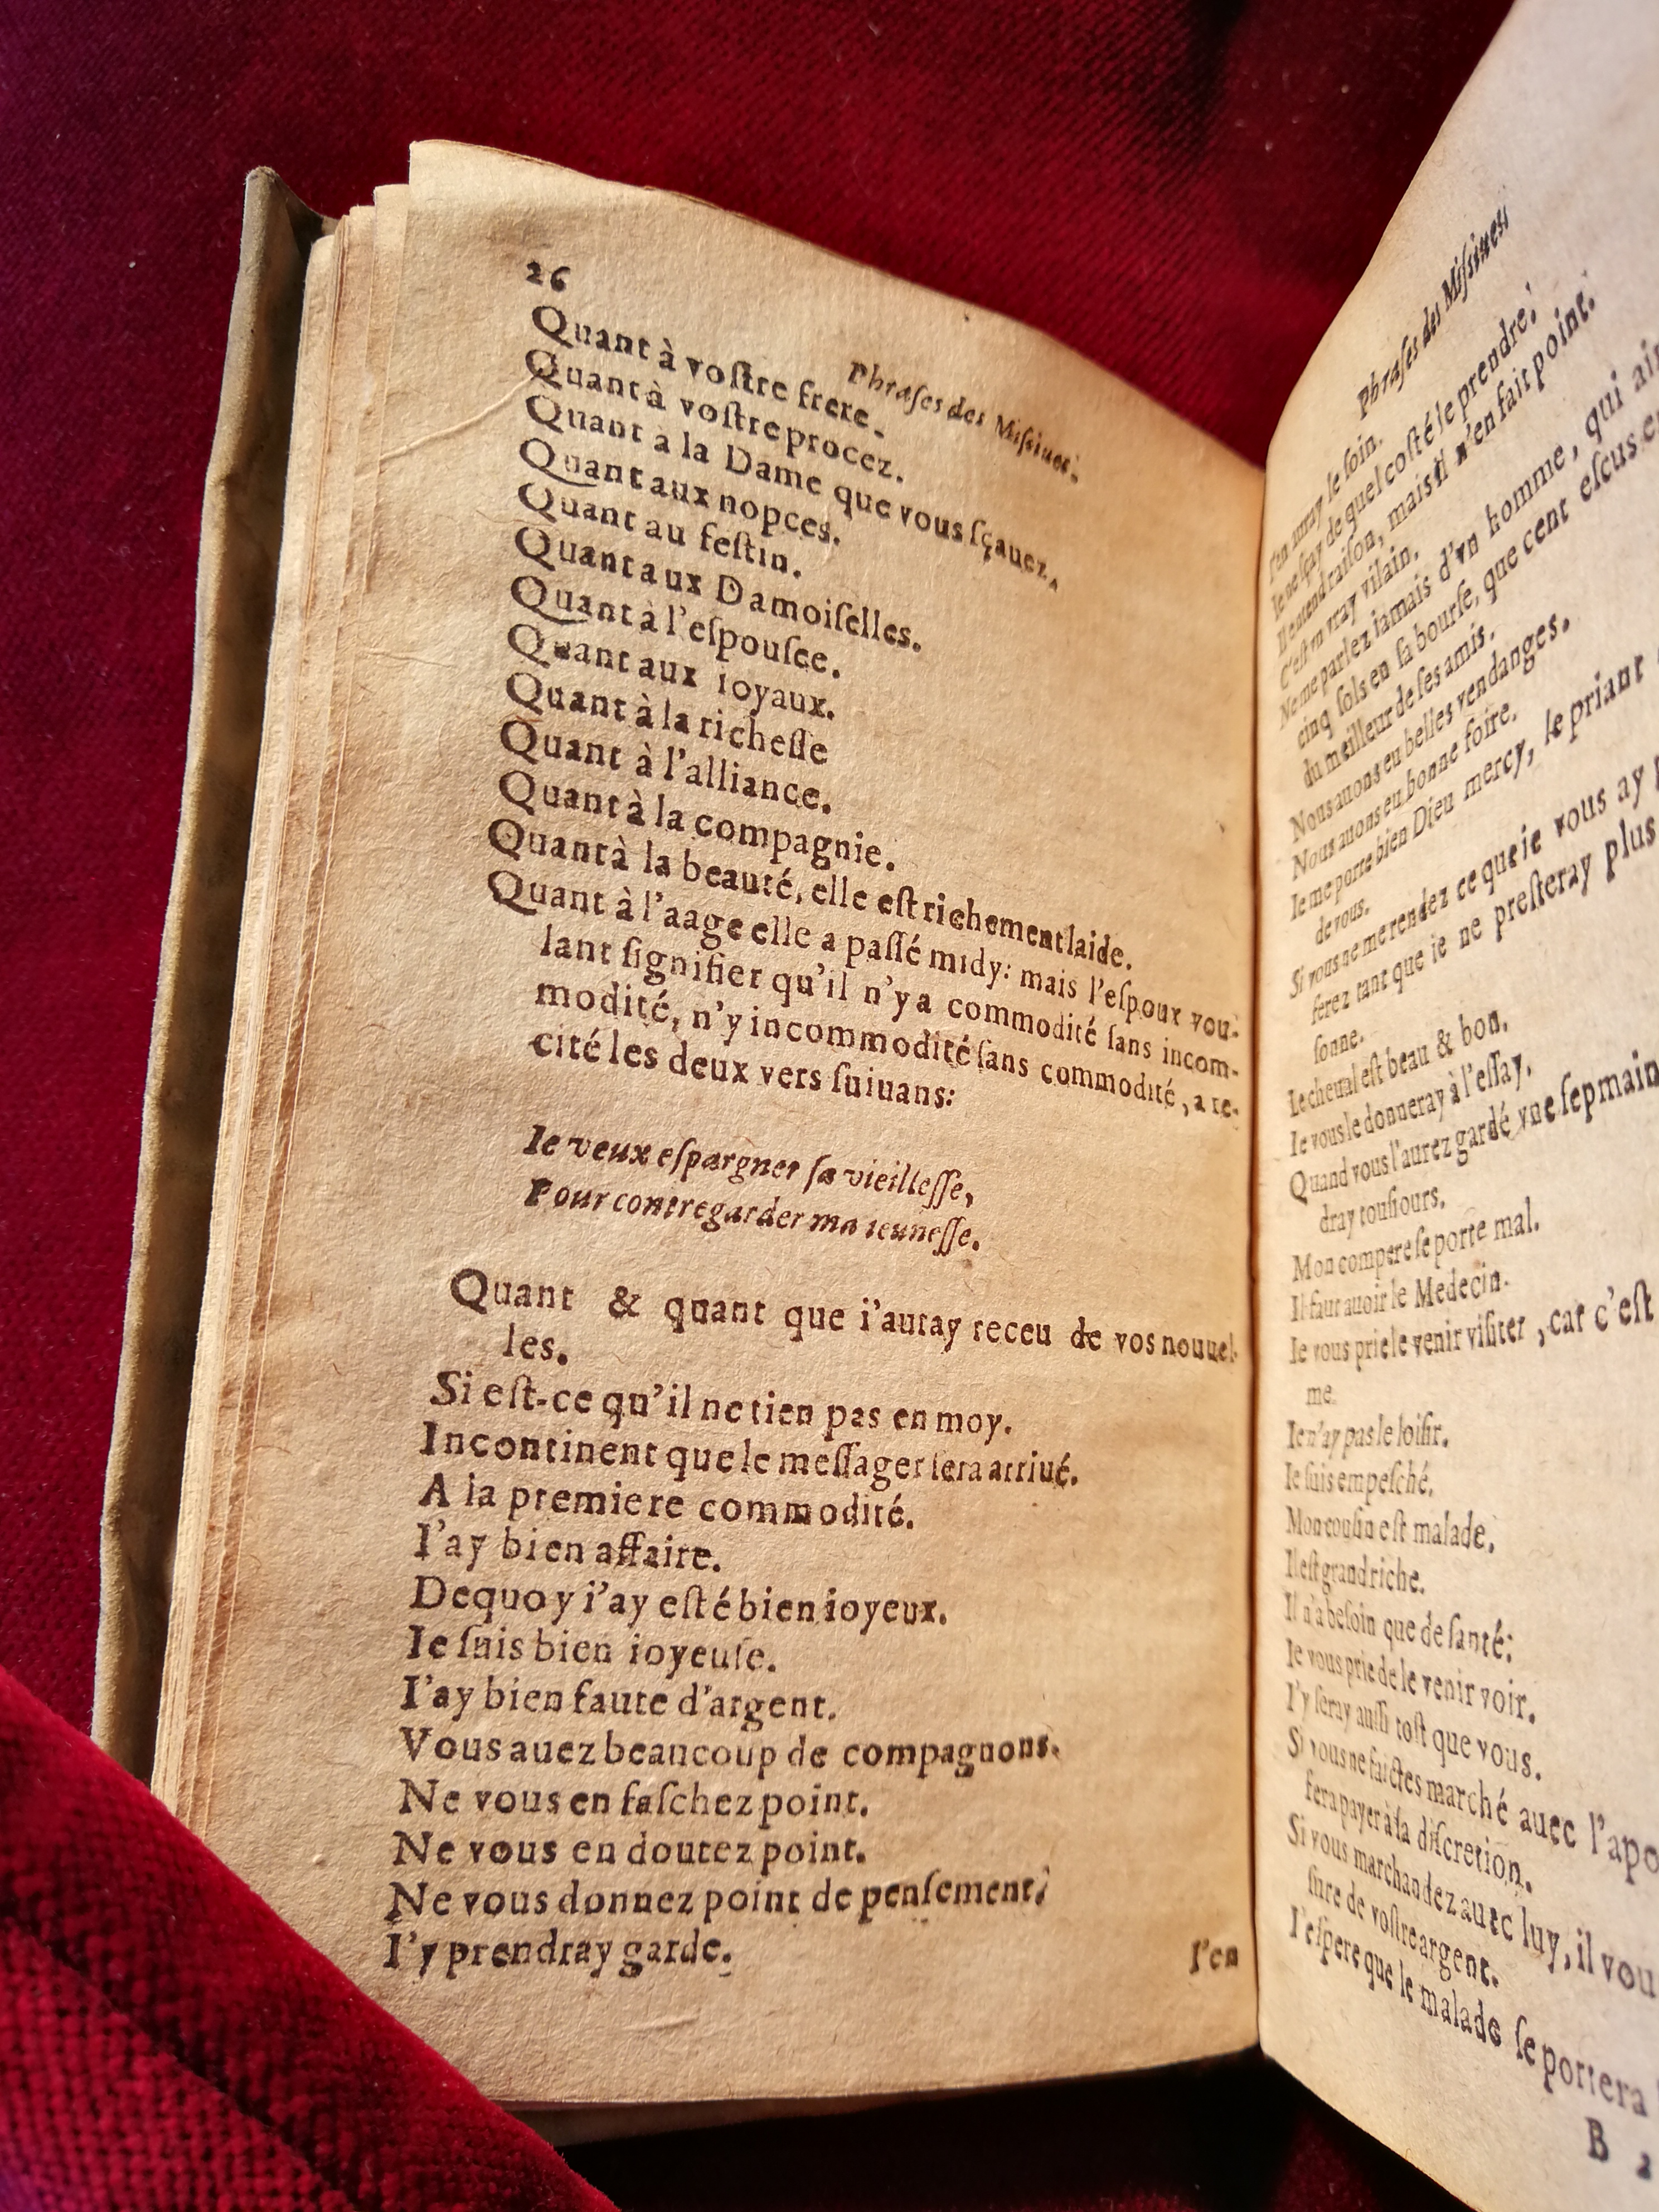 26
Phraſes des Miſsiues.
Quant à voſtre frere.
Quant à voſtre procez.
Quant à la Dame que vous ſçauez,
Quant aux nopces.
Quant au feſtin.
Quant aux Damoiſelles.
Quant à l'eſpouſee.
Quant aux ioyaux.
Quant à la richeſſe
Quant à l'alliance.
Quant à la compagnie.
Quant à la beauté, elle eſt richement laide.
Quant à l'aage elle a paſſé midy: mais l'eſpoux vou-
lant ſignifier qu'il n'y a commodité ſans incom-
modité, n'y incommodité ſans commodité, a re-
cité les deux vers ſuiuans:
Ie veux eſpargner ſa vieilleſſe,
Pour contregarder ma ieuneſſe.
Quant & quant que i'auray receu de vos nouuel-
les.
Si eſt-ce qu'il ne tien pas en moy.
Incontinent que le meſſager ſera arriué.
A la premiere commodité.
I'ay bien affaire.
Dequoy i'ay eſté bien ioyeux.
Ie ſuis bien ioyeuſe.
I'ay bien faute d'argent.
Vous auez beaucoup de compagnons.
Ne vous en faſchez point.
Ne vous en doutez point.
Ne vous donnez point de penſement,
I'y prendray garde.
I'en
Phraſes des Miſsiues
I'en auray le ſoin.
Ie ne ſçay de quel coſté le prendre,
Il entend raiſon, mais il n'en fait point.
C'eſt vn vray vilain.
Ne me parlez iamais d'vn homme, qui
cinq ſols en ſa bourſe, que cent eſcus
du meilleur de ſes amis.
Nous auons eu belles vendanges.
Nous auons eu bonne foire.
Ie me porte bien Dieu mercy, le priant
de vous.
Si vous ne me rendez ce que ie vous ay
ferez tant que ie ne preſteray plus
ſonne.
Le cheual eſt beau & bon,
Ie vous le donneray à l'eſſay,
Quand vous l'aurez gardé vne ſepmain
dray touſiours.
Mon compere ſe porte mal.
Il faut auoir le Medecin.
Ie vous prie le venir viſiter, car c'eſt
me.
Ie n'ay pas le loiſir.
Ie ſuis empeſché,
Mon couſin eſt malade,
Il eſt grand riche.
Il n'a beſoin que de ſanté:
Ie vous prie de le venir voir.
I'y ſeray auſſi toſt que vous.
Si vous ne faictes marché auec l'apo
fera payer à ſa diſcretion.
Si vous marchandez auec luy, il vou
ſure de voſtre argent.
I'eſpere que le malade ſe portera
B 2